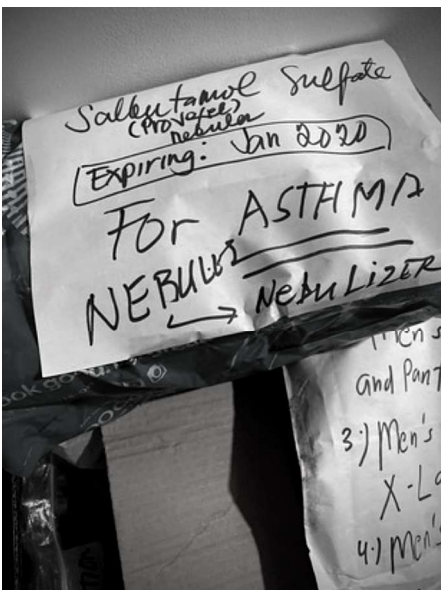 Salbutamol Sulfate
(Proventil)
nebules
Expiring: Jan 2020
For ASTHMA
NEBULES
→ NebuLizER
Men's
and Pan
3.) Men's
X-La
4.) Men's